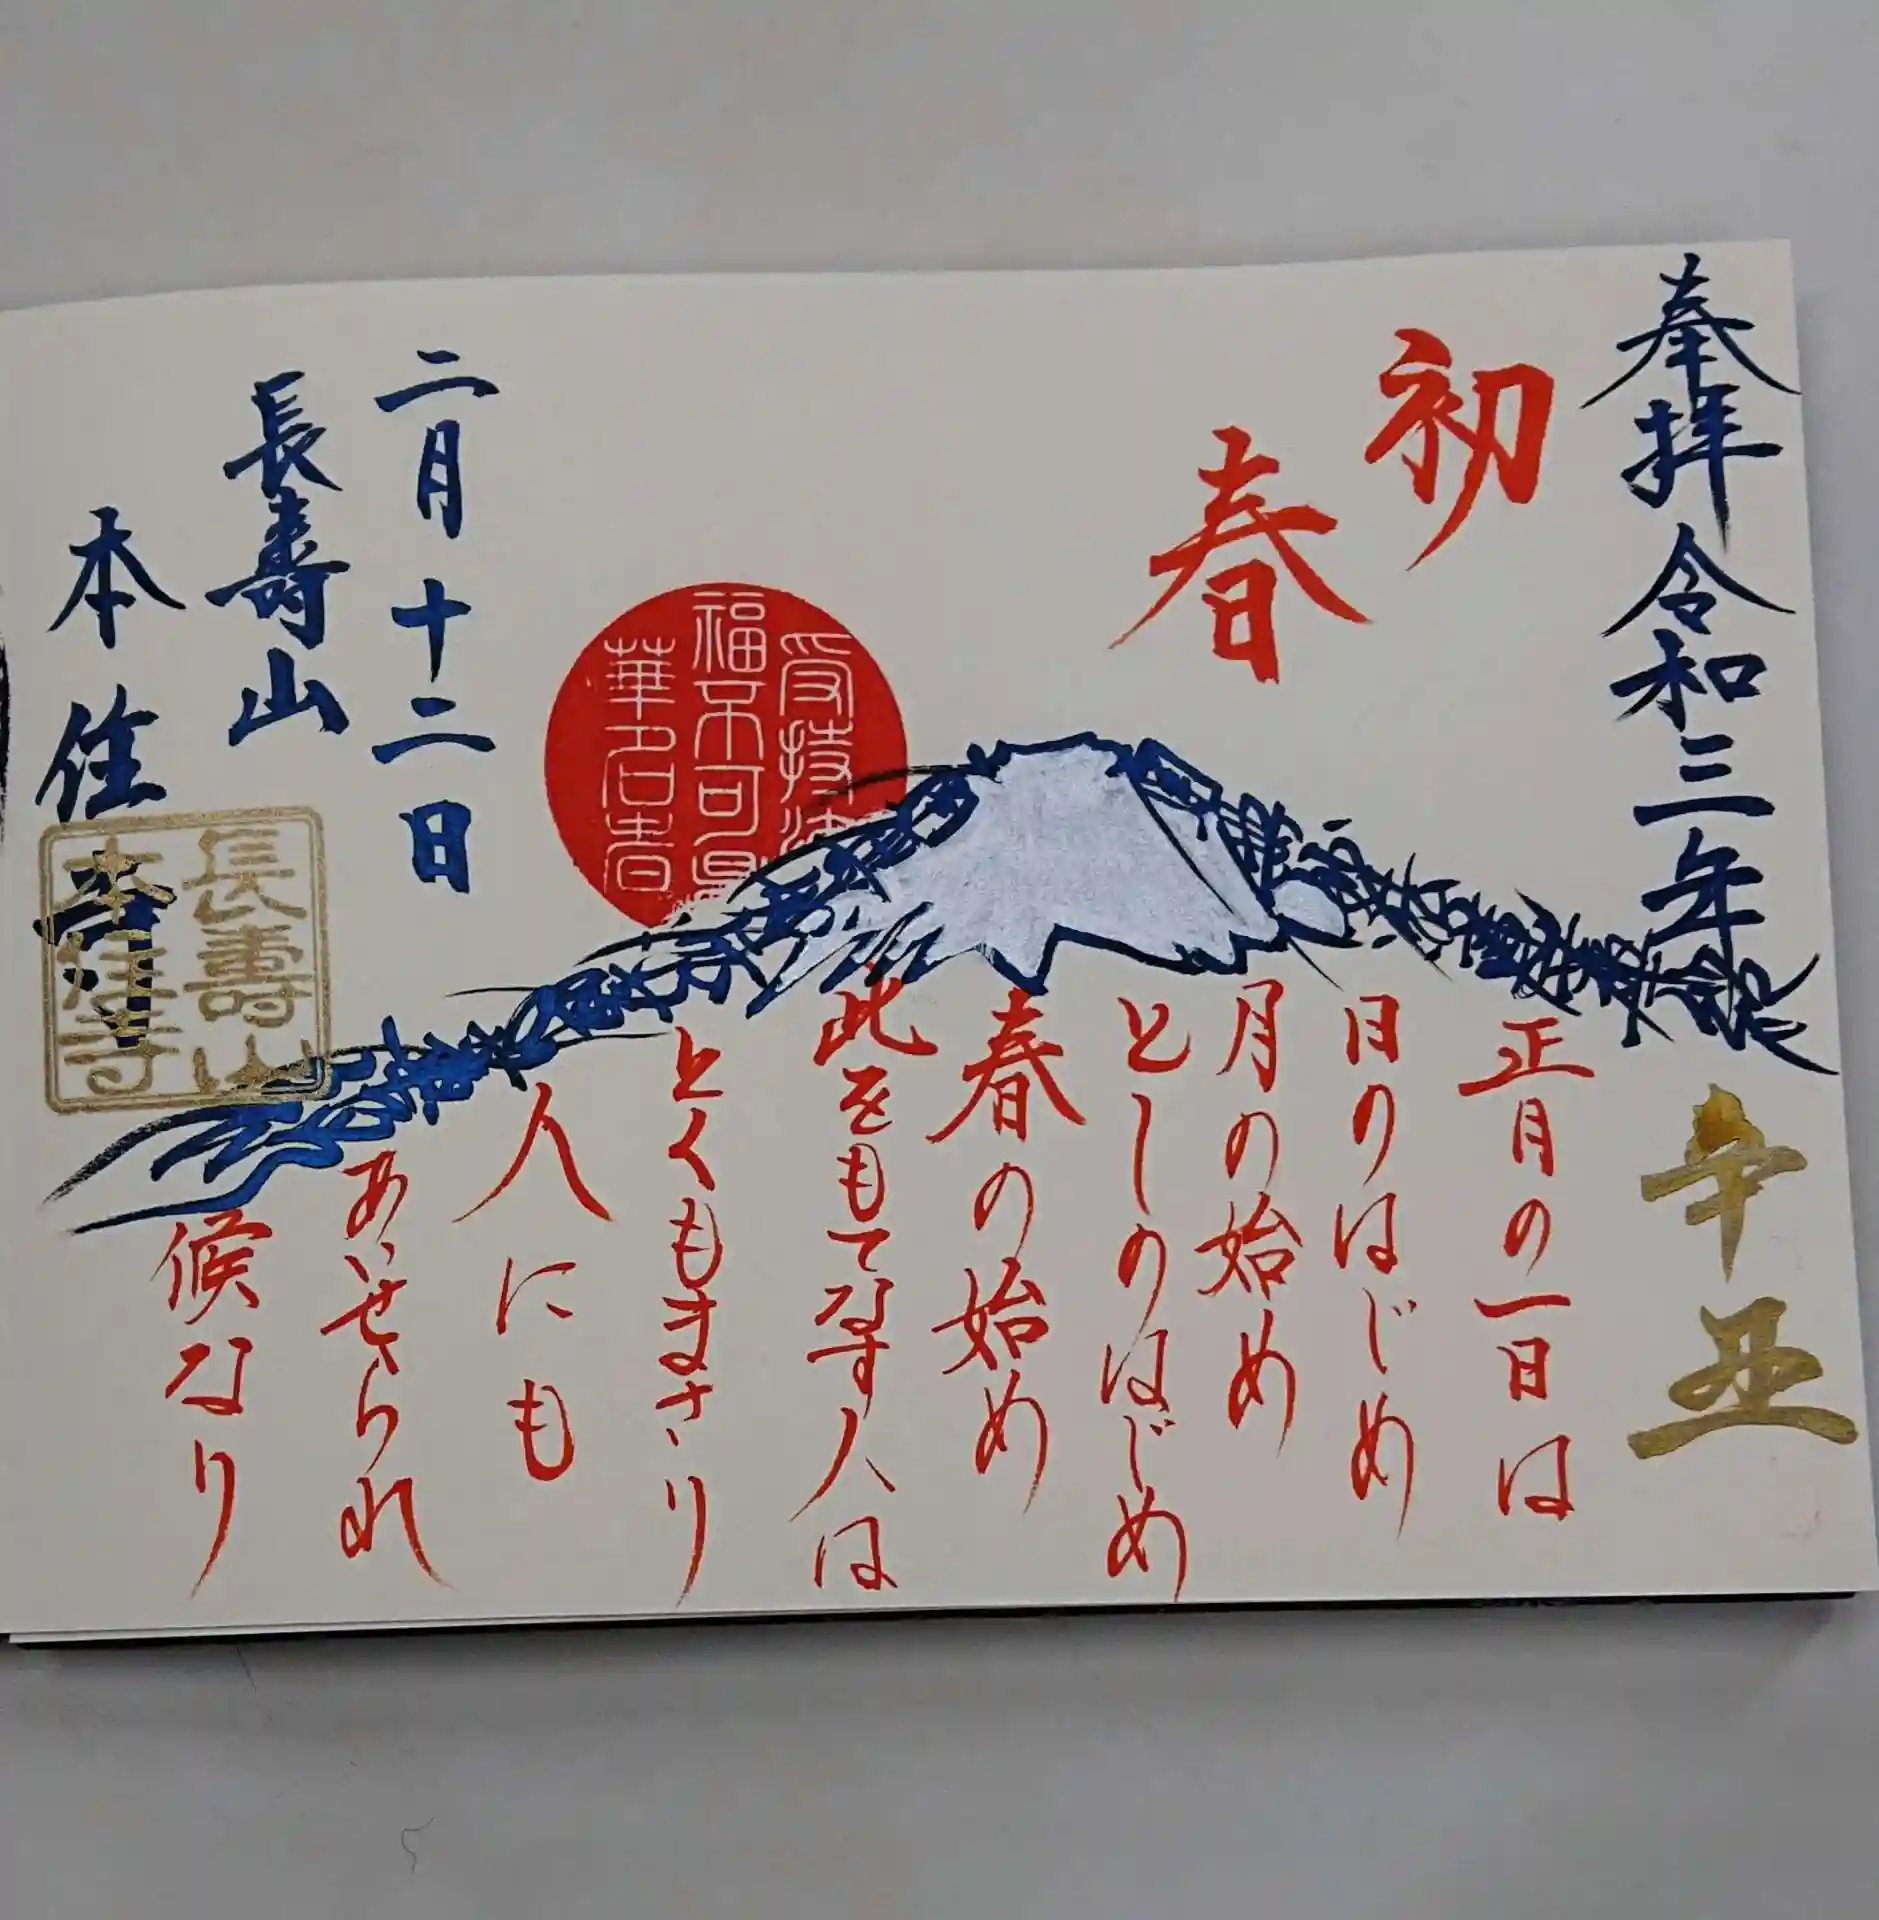 奉拝 令和三年
辛丑
初
春
正月の一日は
日のはじめ
月の始め
としのはじめ
春の始め
此をもてなす人は
とくもまさり
人にも
あいせられ
候なり
受持法
福不可量
華名者
二月十二日
長壽山
本住寺
長壽山
本住寺